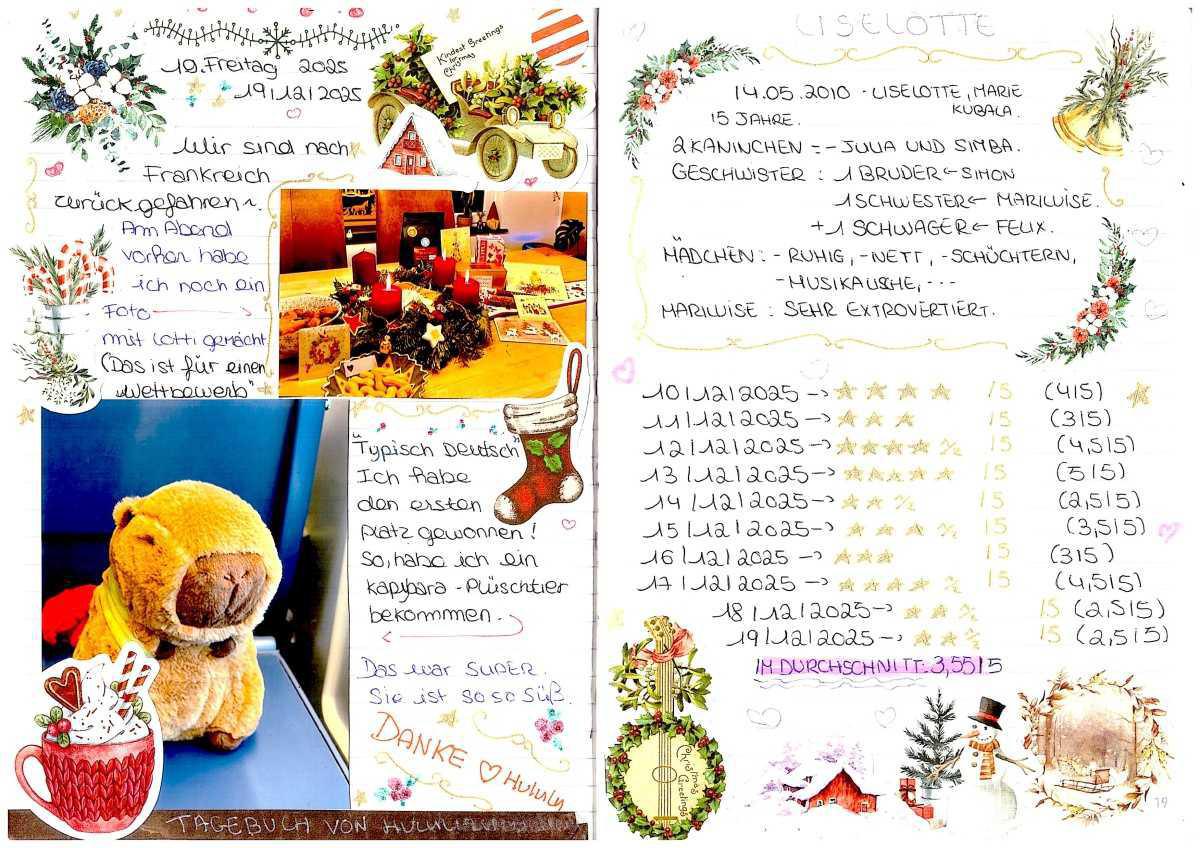 19. Freitag 2025
19|12|2025
Kindest Greetings
for
Christmas
Wir sind nach
Frankreich
zurück gefahren.
Am Abend
vorher habe
ich noch ein
Foto
mit Lotti gemacht
(Das ist für einen
"Wettbewerb"
"Typisch Deutsch"
Ich habe
den ersten
platz gewonnen!
So, habe ich ein
kapybara-Plüschtier
bekommen.
Das war SUPER.
Sie ist so so süß.
DANKE ♡ Hululu
TAGEBUCH VON
LISELOTTE
14.05.2010 - LISELOTTE, MARIE
KUBALA.
15 JAHRE.
2 KANINCHEN : - JULIA UND SIMBA.
GESCHWISTER : 1 BRUDER ← SIMON
1 SCHWESTER ← MARILUISE.
+ 1 SCHWAGER ← FELIX.
MÄDCHEN : - RUHIG, - NETT, - SCHÜCHTERN,
- MUSIKALISCHE, ...
MARILUISE : SEHR EXTROVERTIERT.
10|12|2025 → ☆☆☆☆ /5 (4|5) ☆
11|12|2025 → ☆☆☆ /5 (3|5)
12|12|2025 → ☆☆☆☆ ½ /5 (4,5|5)
13|12|2025 → ☆☆☆☆☆ /5 (5|5)
14|12|2025 → ☆☆ ½ /5 (2,5|5)
15|12|2025 → ☆☆☆ ½ /5 (3,5|5)
16|12|2025 → ☆☆☆ /5 (3|5)
17|12|2025 → ☆☆☆☆ ½ /5 (4,5|5)
18|12|2025 → ☆☆ ½ /5 (2,5|5)
19|12|2025 → ☆☆ ½ /5 (2,5|5)
IM DURCHSCHNITT: 3,55|5
Christmas
Greetings
19